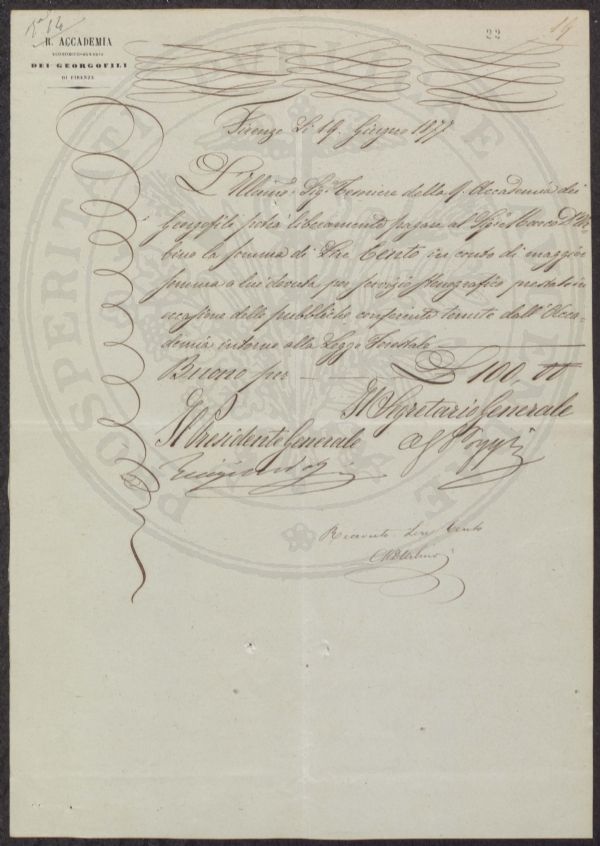 N° 14
22
19
R. ACCADEMIA
ECONOMICO-AGRARIA
DEI GEORGOFILI
DI FIRENZE
Firenze Li 19. Giugno 1877
L'Illmo Sig. Tesoriere della R. Accademia dei
Georgofili potrà liberamente pagare al Sigr Marco D'Ur-
bino la somma di Lire Cento in conto di maggior
somma a lui dovuta per servizio stenografico prestato in
occasione delle pubbliche conferenze tenute dall'Acca-
demia intorno alla Legge Forestale
Buono per £ 100, 00
Il Segretario Generale
Il Presidente Generale
Ricevuto Lire Cento
MDUrbino
PROSPERITATI